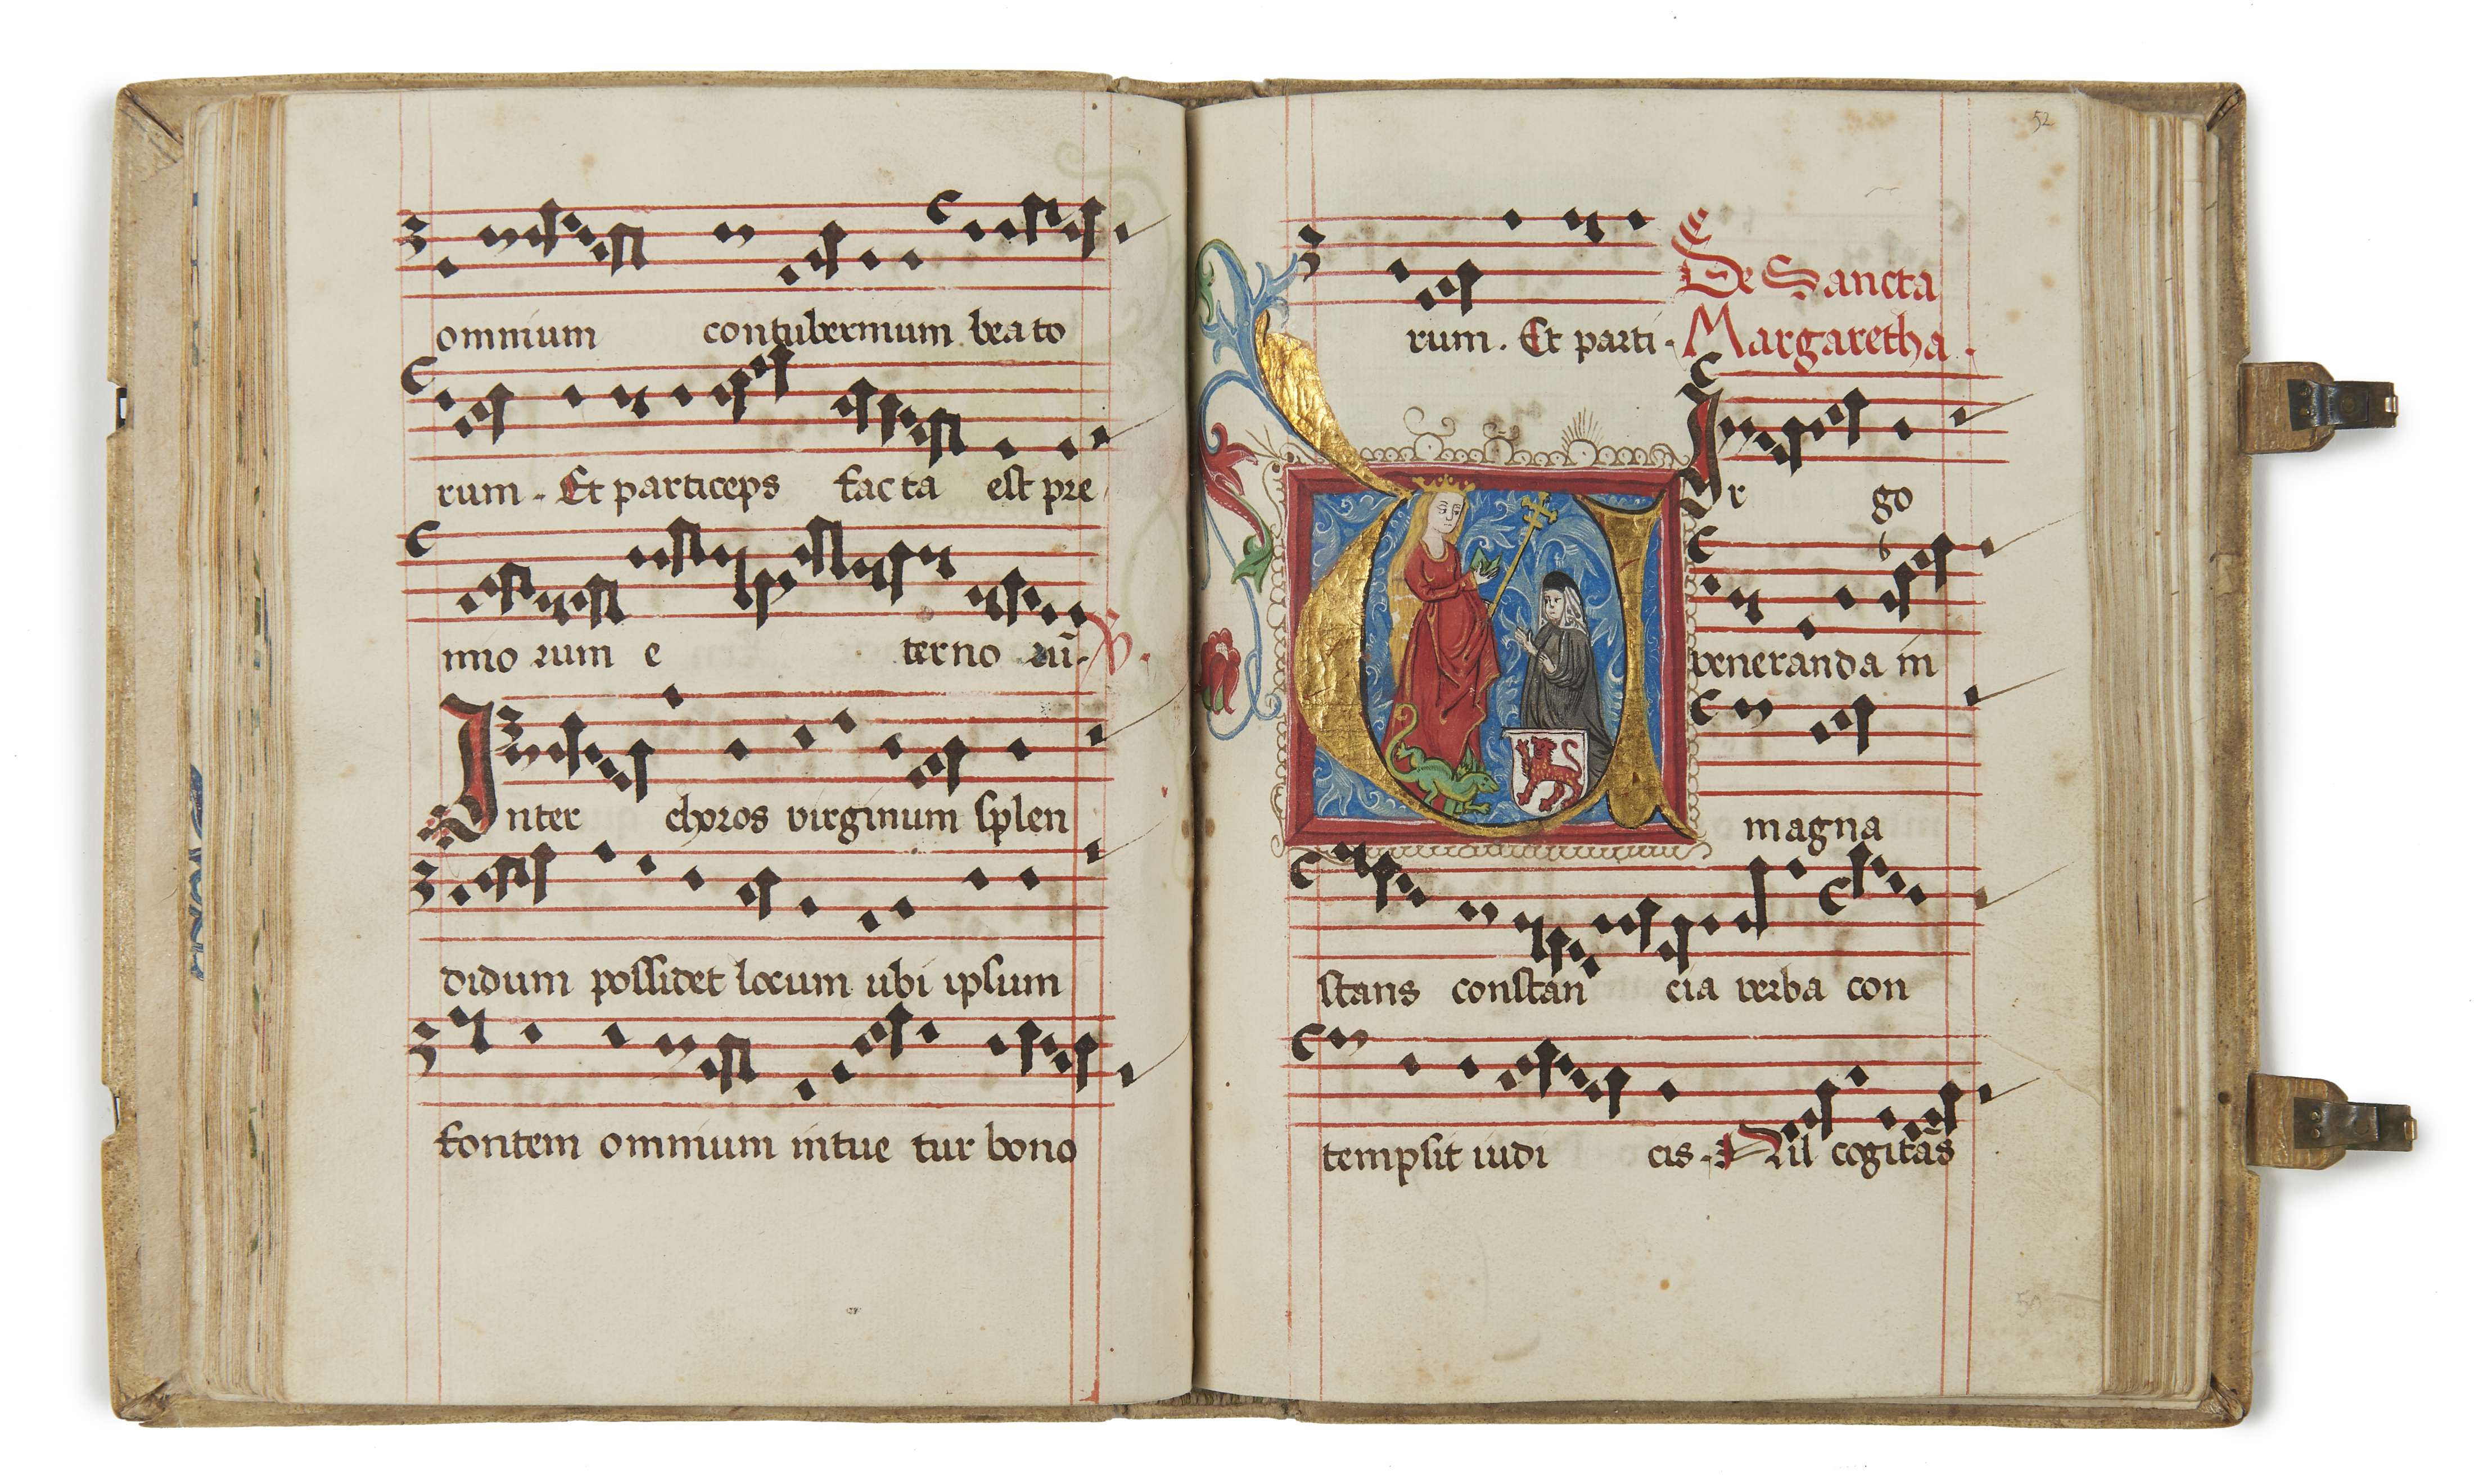 omnium contubernium beato
rum. Et particeps facta est pre
mio rum e terno rū. V.
Inter choros virginum splen
didum possidet locum ubi ipsum
fontem omnium intue tur bono
52
rum. Et parti.
De Sancta
Margaretha.
Vir go
veneranda in
magna
stans constan cia verba con
tempsit iudi cis. Nil cogitās
50